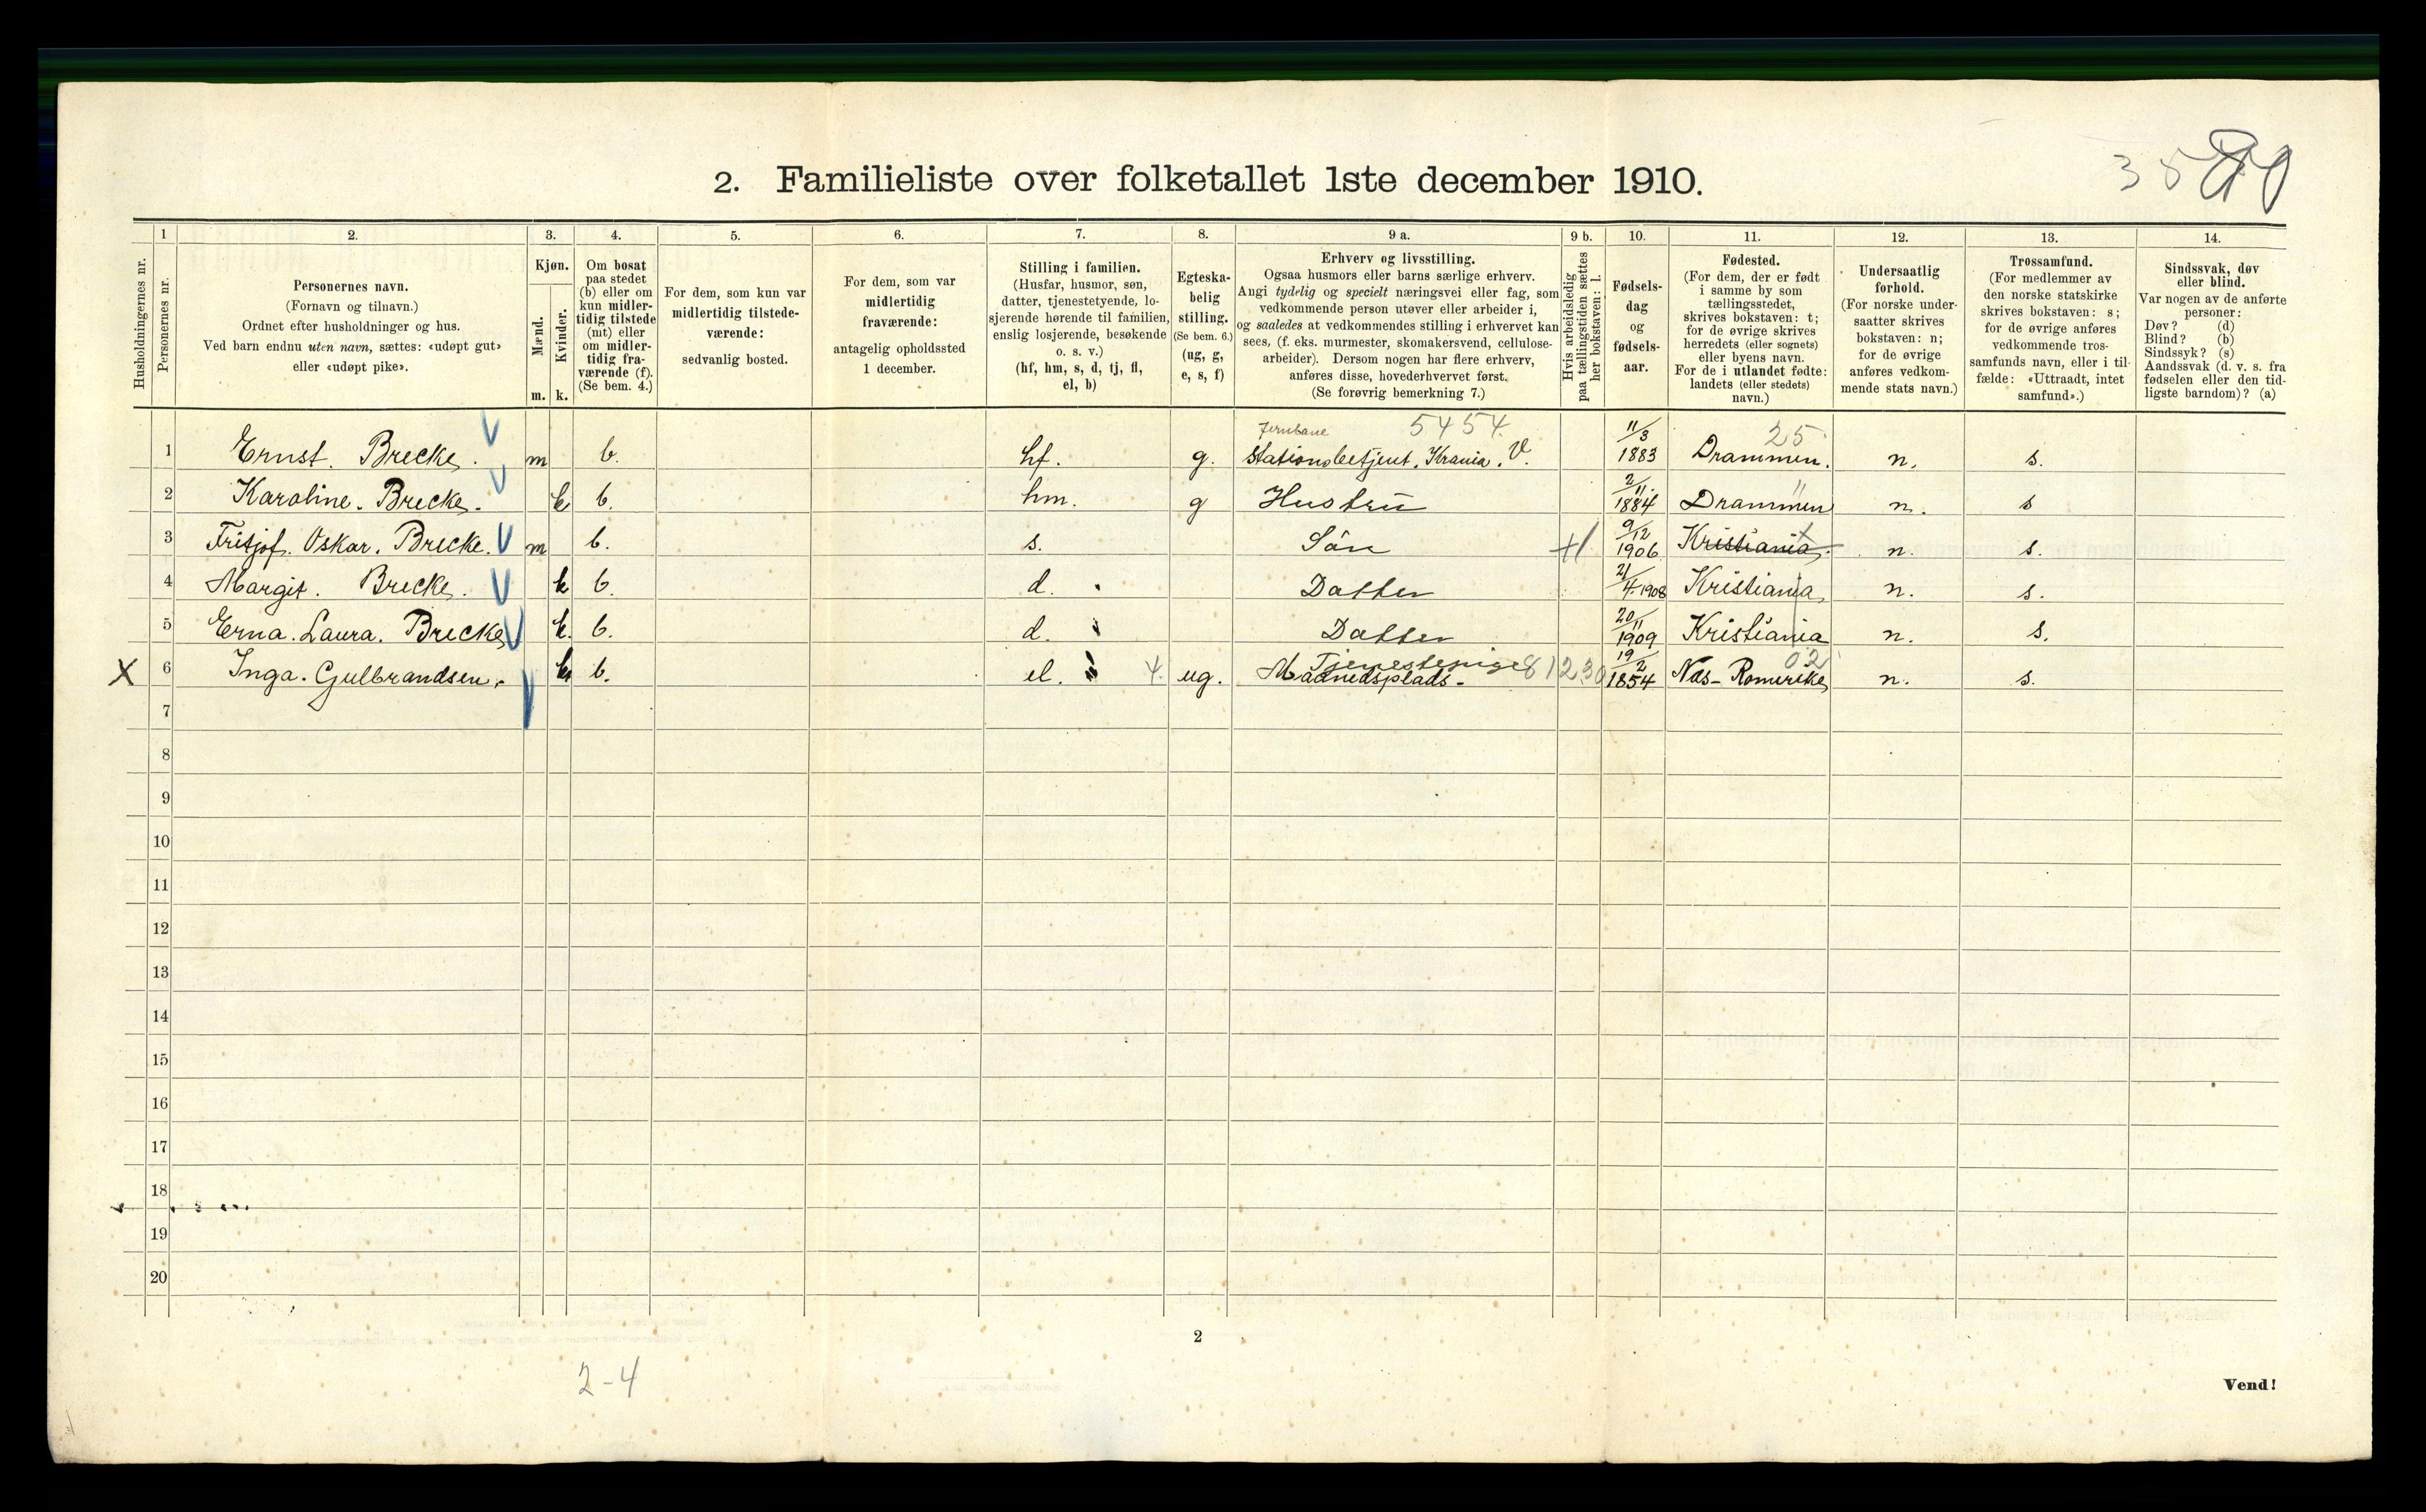 2. Familieliste over folketallet 1ste december 1910.
Husholdningernes nr.
1 Personernes nr.
2. Personernes navn.
(Fornavn og tilnavn.)
Ordnet efter husholdninger og hus.
Ved barn endnu uten navn, sættes: «udøpt gut»
eller «udøpt pike».
3. Kjøn.
Mænd. m.
Kvinder. k.
4. Om bosat
paa stedet
(b) eller om
kun midler-
tidig tilstede
(mt) eller
om midler-
tidig fra-
værende (f).
(Se bem. 4.)
5. For dem, som kun var
midlertidig tilstede-
værende:
sedvanlig bosted.
6. For dem, som var
midlertidig
fraværende:
antagelig opholdssted
1 december.
7. Stilling i familien.
(Husfar, husmor, søn,
datter, tjenestetyende, lo-
sjerende hørende til familien,
enslig losjerende, besøkende
o. s. v.)
(hf, hm, s, d, tj, fl,
el, b)
8. Egteska-
belig
stilling.
(Se bem. 6.)
(ug, g,
e, s, f)
9 a. Erhverv og livsstilling.
Ogsaa husmors eller barns særlige erhverv.
Angi tydelig og specielt næringsvei eller fag, som
vedkommende person utøver eller arbeider i,
og saaledes at vedkommendes stilling i erhvervet kan
sees, (f. eks. murmester, skomakersvend, cellulose-
arbeider). Dersom nogen har flere erhverv,
anføres disse, hovederhvervet først.
(Se forøvrig bemerkning 7.)
9 b. Hvis arbeidsledig
paa tællingstiden sættes
her bokstaven: l.
10. Fødsels-
dag
og
fødsels-
aar.
11. Fødested.
(For dem, der er født
i samme by som
tællingsstedet,
skrives bokstaven: t;
for de øvrige skrives
herredets (eller sognets)
eller byens navn.
For de i utlandet fødte:
landets (eller stedets)
navn.)
12. Undersaatlig
forhold.
(For norske under-
saatter skrives
bokstaven: n;
for de øvrige
anføres vedkom-
mende stats navn.)
13. Trossamfund.
(For medlemmer av
den norske statskirke
skrives bokstaven: s;
for de øvrige anføres
vedkommende tros-
samfunds navn, eller i til-
fælde: «Uttraadt, intet
samfund».)
14. Sindssvak, døv
eller blind.
Var nogen av de anførte
personer:
Døv? (d)
Blind? (b)
Sindssyk? (s)
Aandssvak (d. v. s. fra
fødselen eller den tid-
ligste barndom)? (a)
Jernbane 5454. 11/3 25
1 Ernst. Brecke. m b. hf. g. Stationsbetjent. Krania. V. 1883 Drammen. n. s.
2 Karoline. Brecke. k b. hm. g Hustru 2/11. 1884 Drammen n. s
3 Fritjof. Oskar. Brecke. m b. s. Sön 9/12 1906 Kristiania. n. s.
4 Margit. Brecke. k b. d. Datter 21/4. 1908 Kristiania n. s.
5 Erna. Laura. Brecke k. b. d. Datter 20/11 1909 Kristiania n. s.
Tjenestepige 02
X 6 Inga. Gulbrandsen. k b. el. 4. ug. Maanedsplads. 81230 19/2 1854 Næs-Romerike n. s.
7
8
9
10
11
12
13
14
15
16
17
18
19
20
2
2-4
Vend!